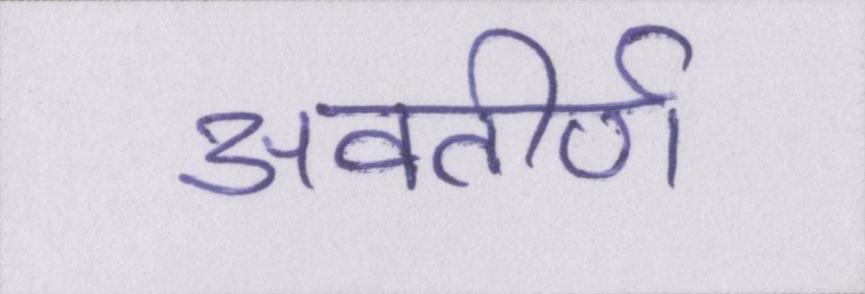 अवतीर्ण